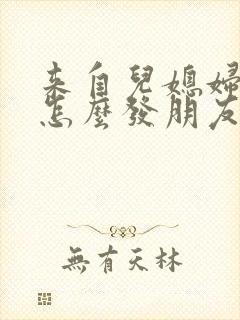 來自兒媳婦
怎麼發朋友
無有天林